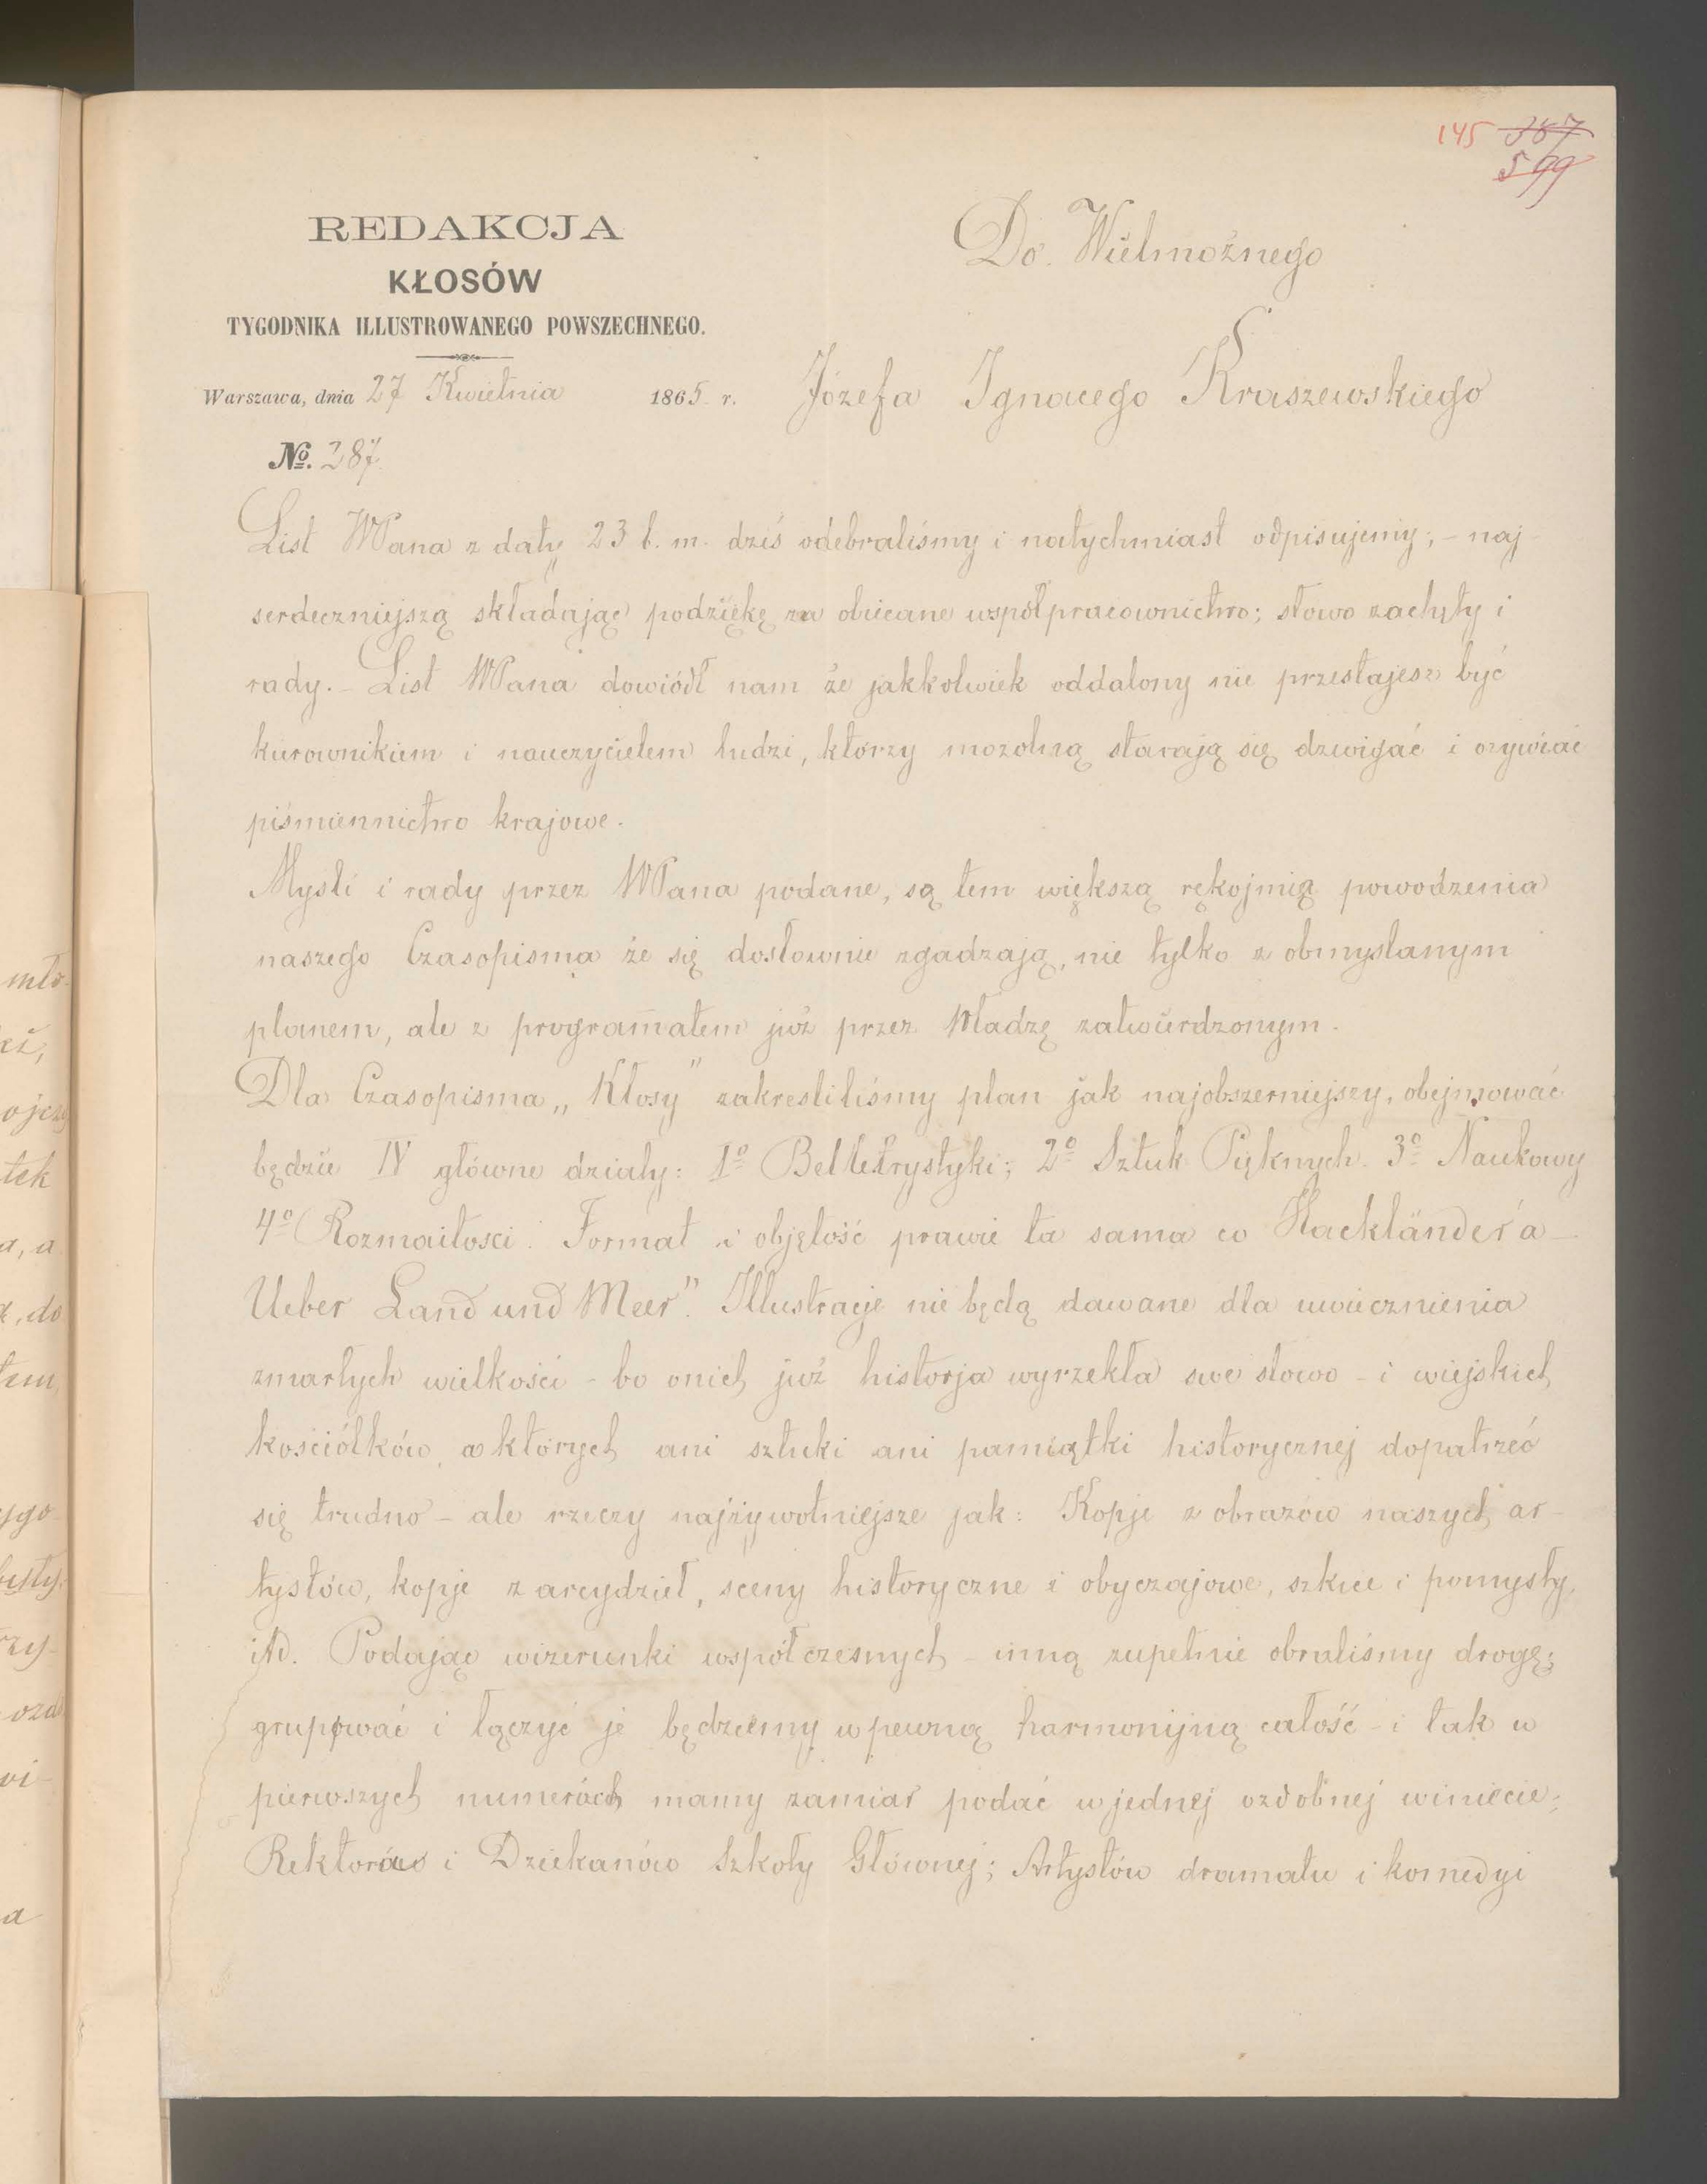 145 387
599
REDAKCJA
KŁOSÓW
TYGODNIKA ILLUSTROWANEGO POWSZECHNEGO.
Warszawa, dnia 27 Kwietnia 1865 r.
No. 287.
Do Wielmożnego
Józefa Ignacego Kraszewskiego
List WPana z daty 23 b. m. dziś odebraliśmy i natychmiast odpisujemy; – naj-
serdeczniejszą składając podziękę za obiecane współpracownictwo; słowo zachęty i
rady. – List WPana dowiódł nam że jakkolwiek oddalony nie przestajesz być
kierownikiem i nauczycielem ludzi, którzy mozolną starają się dzwigać i ożywiać
piśmiennictwo krajowe.
Mysli i rady przez WPana podane, są tem większą rękojmią powodzenia
naszego Czasopisma że się dosłownie zgadzają, nie tylko z obmyslanym
planem, ale z programatem już przez Władzę zatwierdzonym.
Dla Czasopisma „Kłosy" zakresliliśmy plan jak najobszerniejszy, obejmować
będzie IV główne działy: 1o Belletrystyki; 2o Sztuk Pięknych. 3o Naukowy
4o Rozmaitosci. Format i objętość prawie ta sama co Hackländer'a –
Ueber Land und Meer". Illustracje nie będą dawane dla uwiecznienia
zmarłych wielkości – bo onich już historja wyrzekła swe słowo – i wiejskich
kościółków, w których ani sztuki ani pamiątki historycznej dopatrzeć
się trudno – ale rzeczy najżywotniejsze jak: Kopje z obrazów naszych ar-
tystów, kopje z arcydzieł, sceny historyczne i obyczajowe, szkice i pomysły,
itd. Podając wizerunki współczesnych – inną zupełnie obraliśmy drogę;
grupować i łączyć je będziemy w pewną harmonijną całość – i tak w
pierwszych numerach mamy zamiar podać w jednej ozdobnej winiecie;
Rektorów i Dziekanów Szkoły Głównej; Artystów dramatu i komedyi